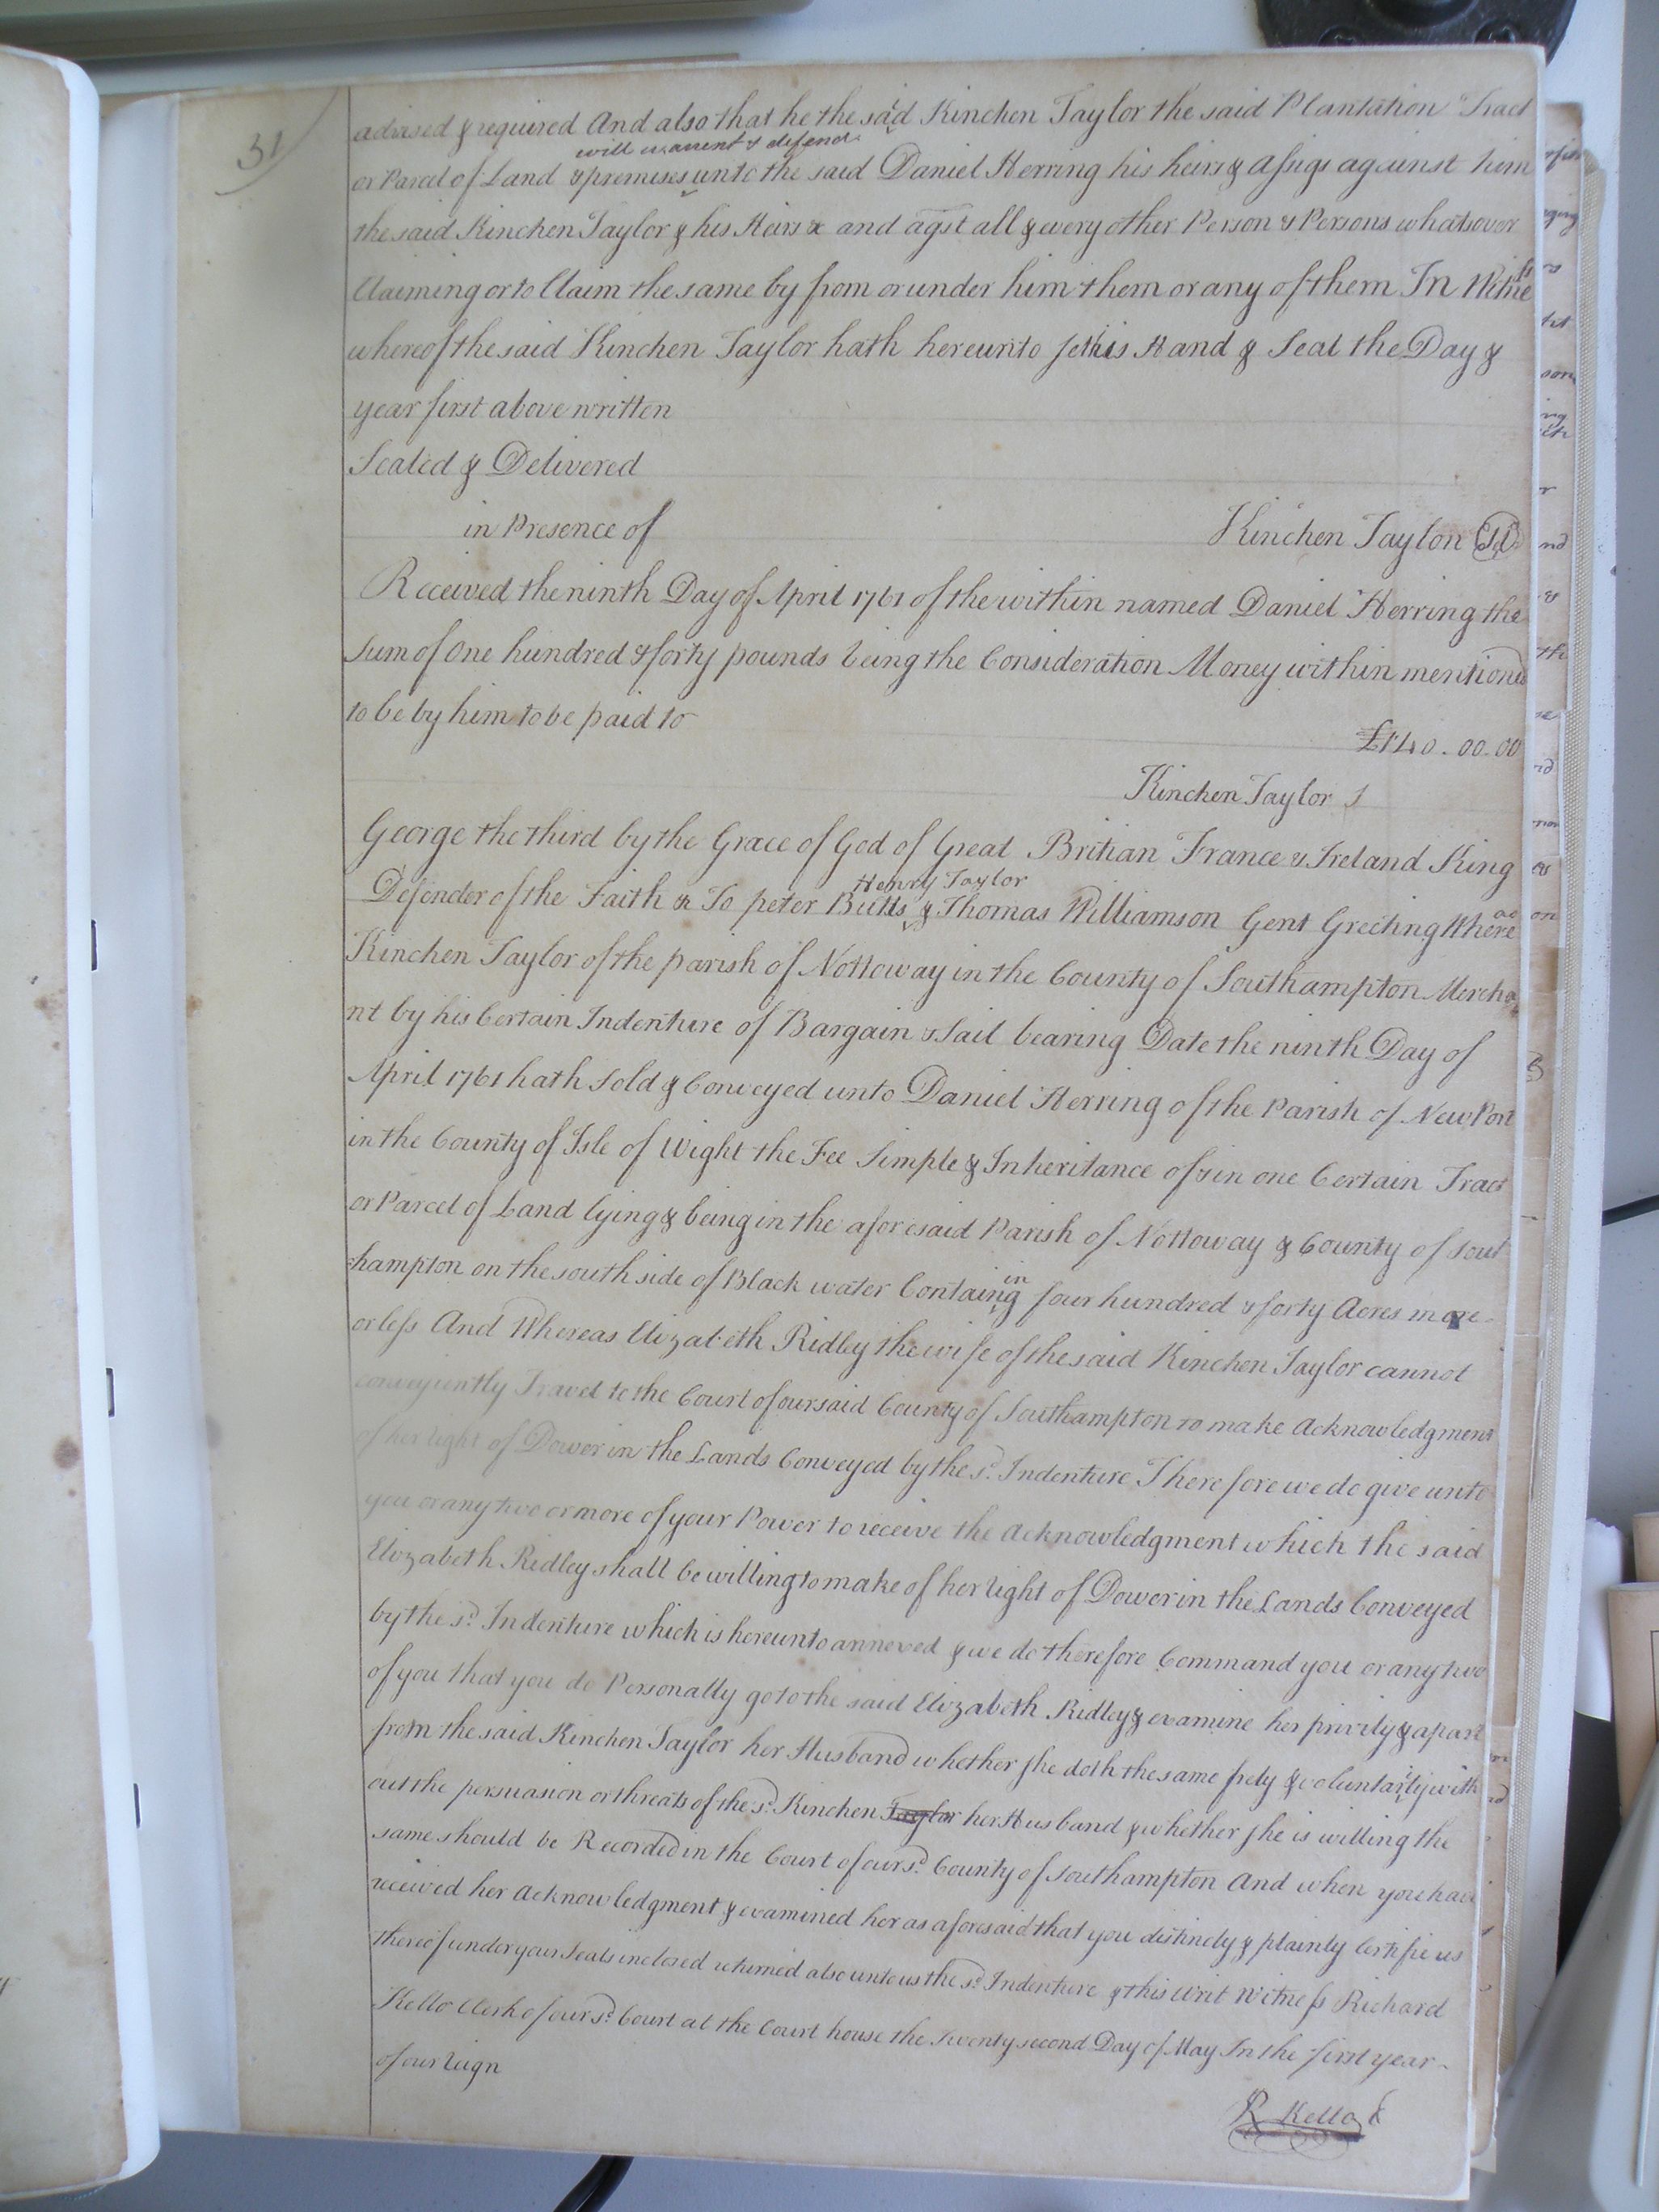 31
advised & required And also that he the said Kinchen Taylor the said Plantation Tract
will warrent & defend
or Parcel of Land & premises unto the said Daniel Herring his heirs & assigs against him
the said Kinchen Taylor & his Heirs &c and agst all & every other Person & Persons whatsover
Claiming or to Claim the same by from or under him them or any of them In Witness
whereof the said Kinchen Taylor hath hereunto set his Hand & Seal the Day &
year first above written
Sealed & Delivered
in Presence of
Kinchen Taylor
Received the ninth Day of April 1761 of the within named Daniel Herring the
Sum of One hundred & forty pounds being the Consideration Money within mentiond
to be by him to be paid to
£140.00.00
Kinchen Taylor
George the third by the Grace of God of Great Britian France & Ireland King
Henry Taylor
Defender of the Faith & To peter Butts & Thomas Williamson Gent Greeting Whereas
Kinchen Taylor of the parish of Nottoway in the County of Southampton Mercha
nt by his Certain Indenture of Bargain & Sail bearing Date the ninth Day of
April 1761 hath Sold & Conveyed unto Daniel Herring of the Parish of New Port
in the County of Isle of Wight the Fee Simple & Inheritance of & in one Certain Tract
or Parcel of Land lying & being in the aforesaid Parish of Nottoway & County of Sout
hampton on the south side of Black water Containing four hundred & forty Acres more
or less And Whereas Elizabeth Ridley the wife of the said Kinchen Taylor cannot
conveyuntly Travel to the Court of our said County of Southampton to make Acknowledgment
of her right of Dower in the Lands Conveyed by the sd. Indenture Therefore we do give unto
you or any two or more of your Power to receive the Acknowledgment which the said
Elizabeth Ridley shall be willing to make of her right of Dower in the Lands Conveyed
by the sd. Indenture which is hereunto annexed & we do therefore Command you or any two
of you that you do Personally go to the said Elizabeth Ridley & examine her privily & apart
from the said Kinchen Taylor her Husband whether she doth the same frely & voluntarily with
out the persuasion or threats of the sd. Kinchen Taylor her Husband & whether she is willing the
same should be Recorded in the Court of our sd. County of Southampton And when you have
received her Acknowledgment & examined her as aforesaid that you distincly & plainly Certifie us
thereof under your Seals inclosed returned also unto us the sd. Indenture & this writ Witness Richard
Kello Clerk of our sd. Court at the Court house the Twenty second Day of May In the first year
of our reign
R Kello